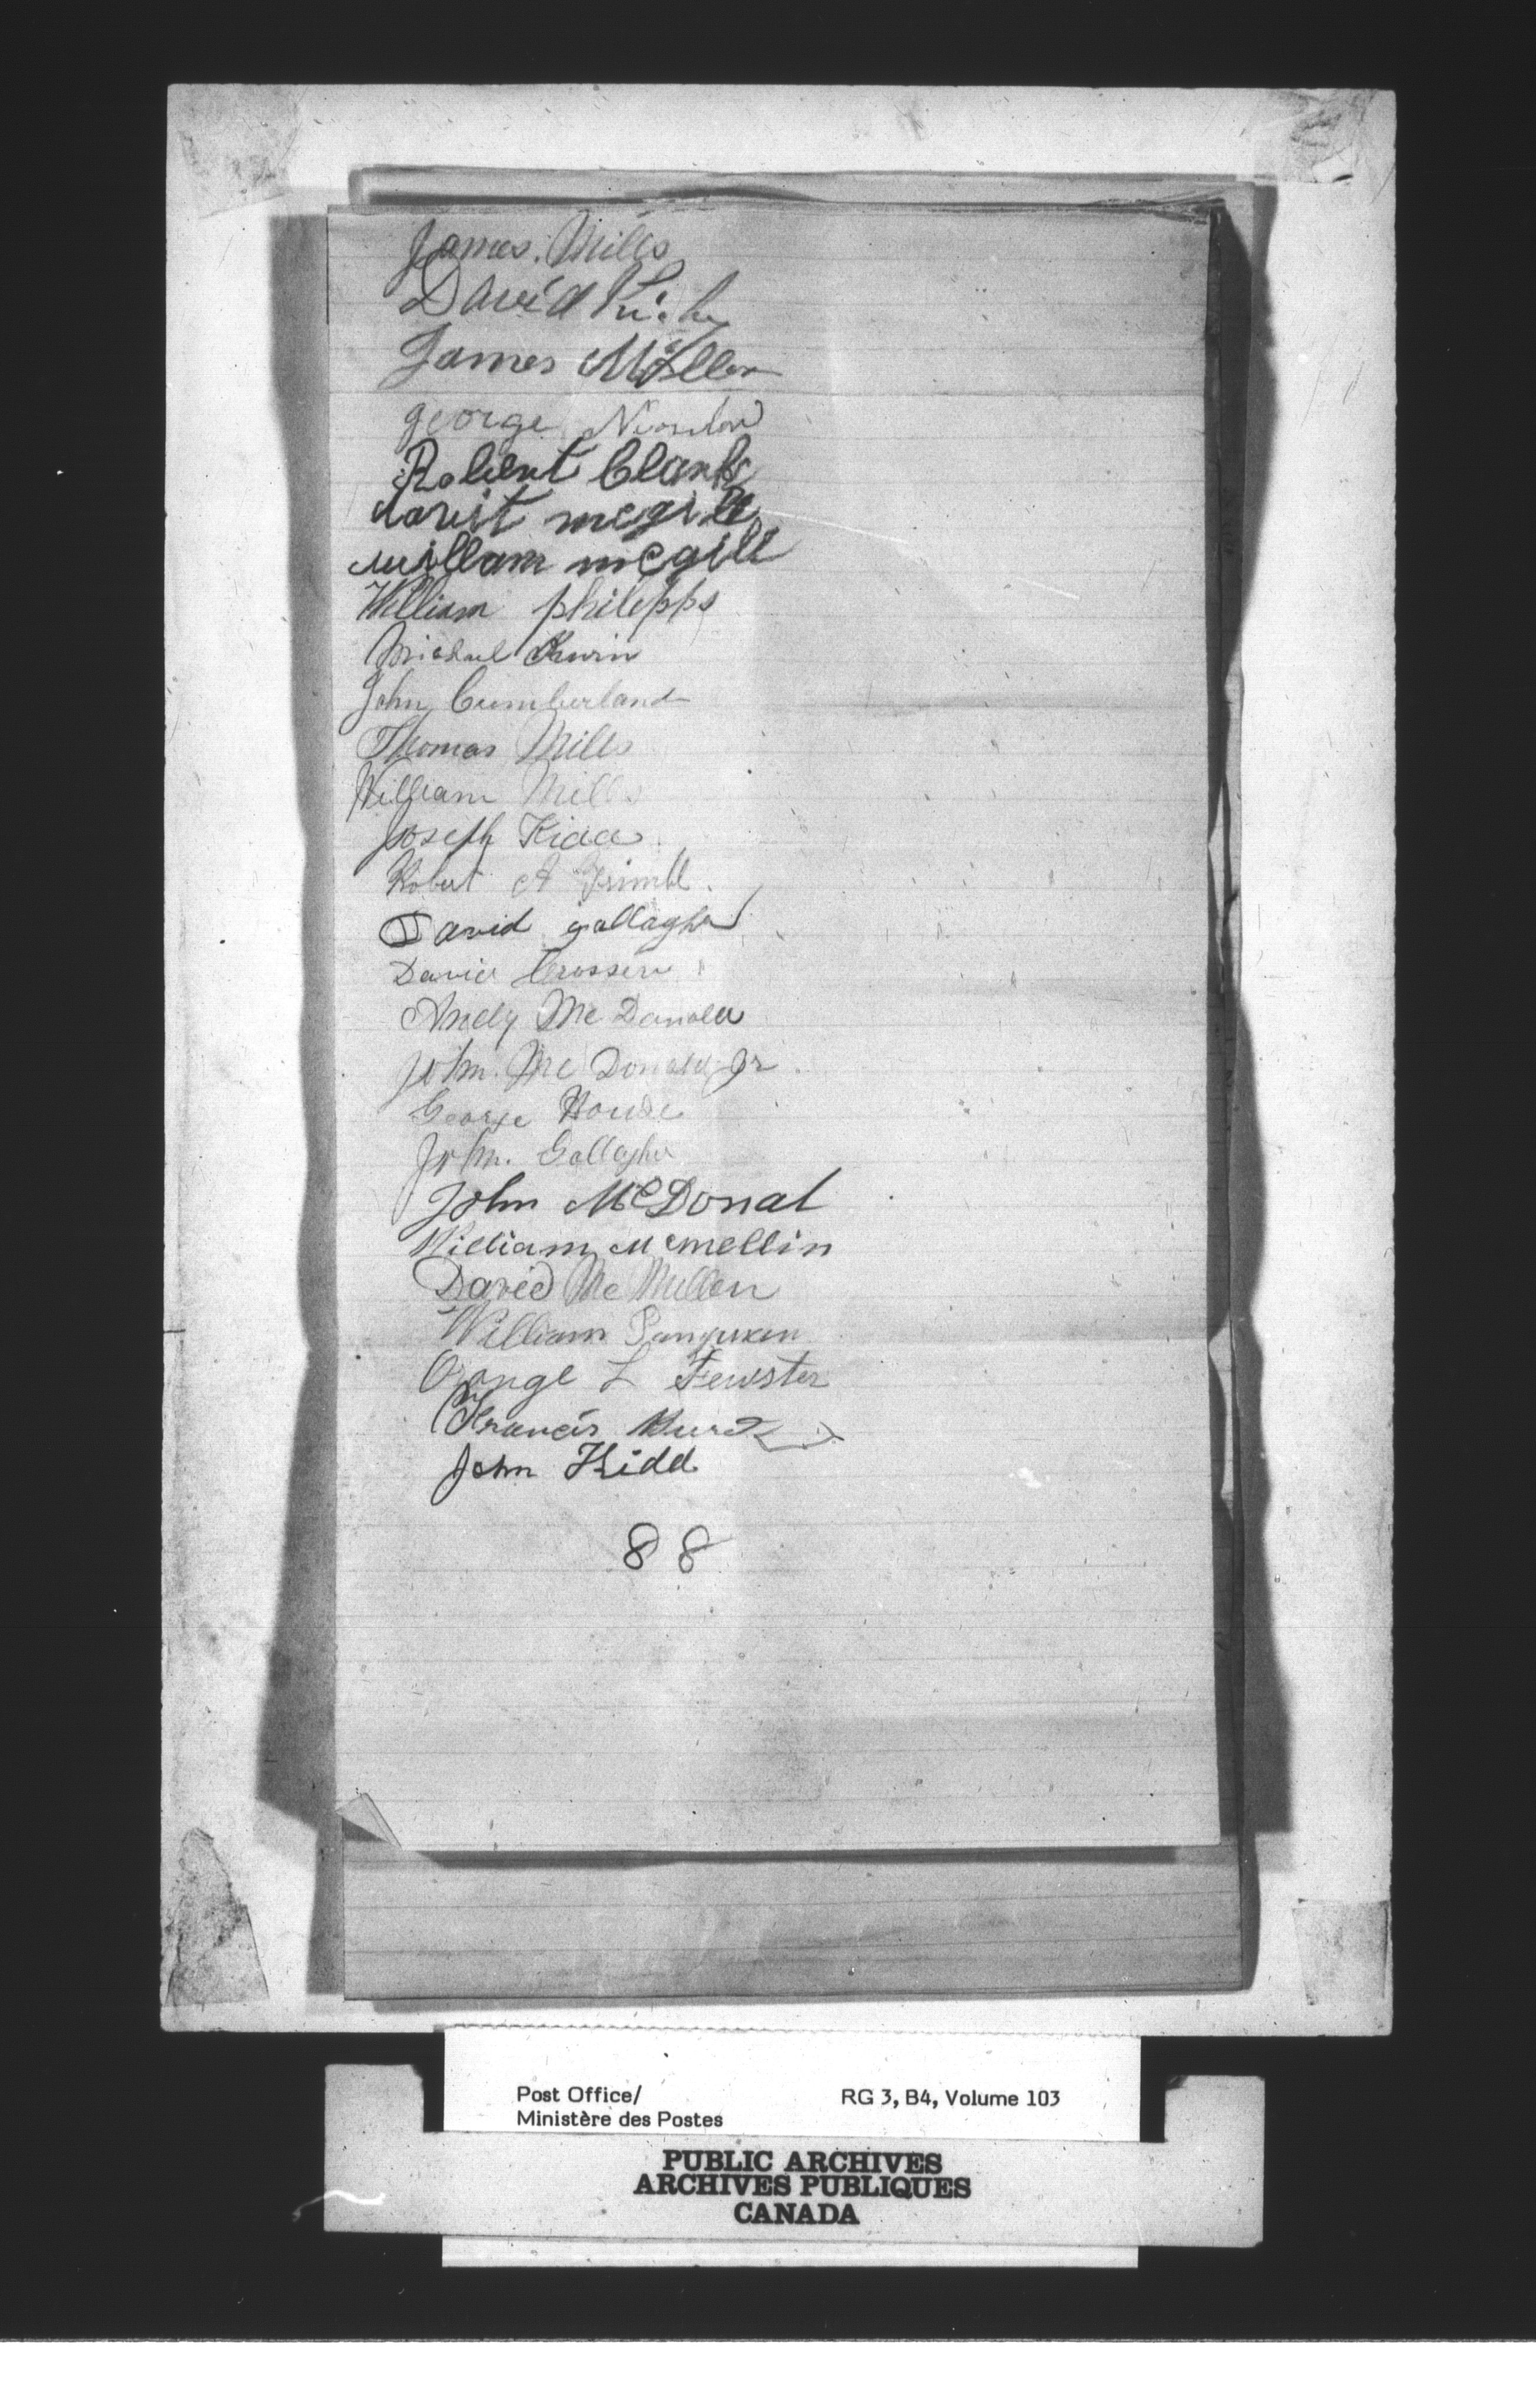 James. Mills
David
James Millen
george
Robert Clark
davit mcgill
willam mcgill
William philipps
Michael Kerwin
John Cumberland
Thomas Mills
William Mills
Joseph Kidd
Robert A Trimbl.
David gallagher
David Crossen
Andy Mc Donald
John. Mc Donald Jr
George House
John. Gallagher
John McDonal
William Mcmellin
David Mc Mullen
William
Orange L Fewster
Francis
John Kidd
88
Post Office/ RG 3, B4, Volume 103
Ministère des Postes
PUBLIC ARCHIVES
ARCHIVES PUBLIQUES
CANADA